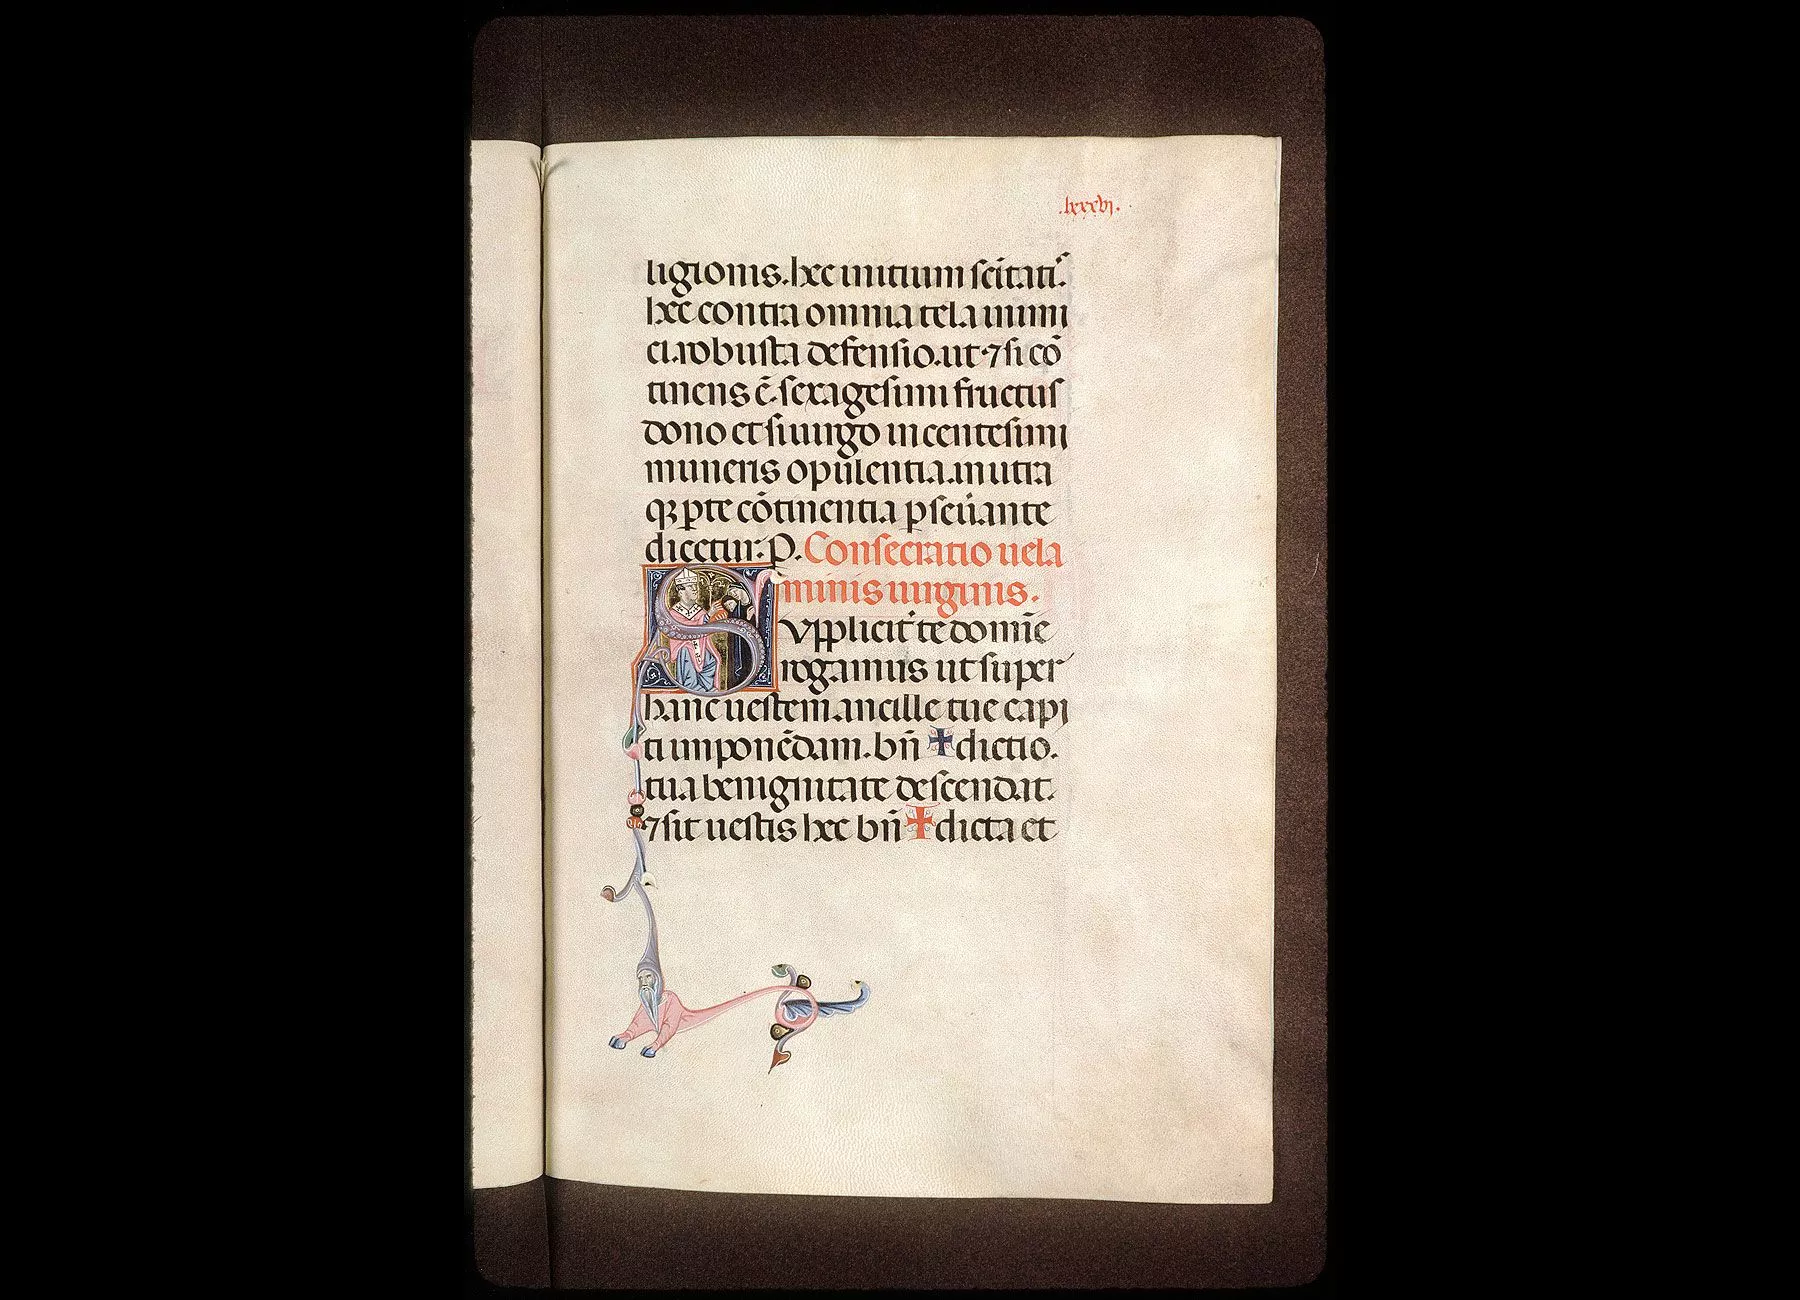 .lxxxvj.
ligionis. hec initium sc̄itatis.
hec contra omnia tela inimi
ci. robusta defensio. ut ⁊ si cō
tinens ē. sexagesimi fructus
dono et si uirgo in centesimi
muneris opulentia. in utra
qꝫ ꝑte cōtinentia ꝑseūante
dicetur. P. Consecratio uela
minis uirginis.
Svpplicit᷑ te domīe
rogamus ut super
hanc uestem. ancille tue capi
ti imponēdam. bn̄ ✝ dictio.
tua benignitate descendat.
⁊ sit uestis hec bn̄ ✝ dicta et